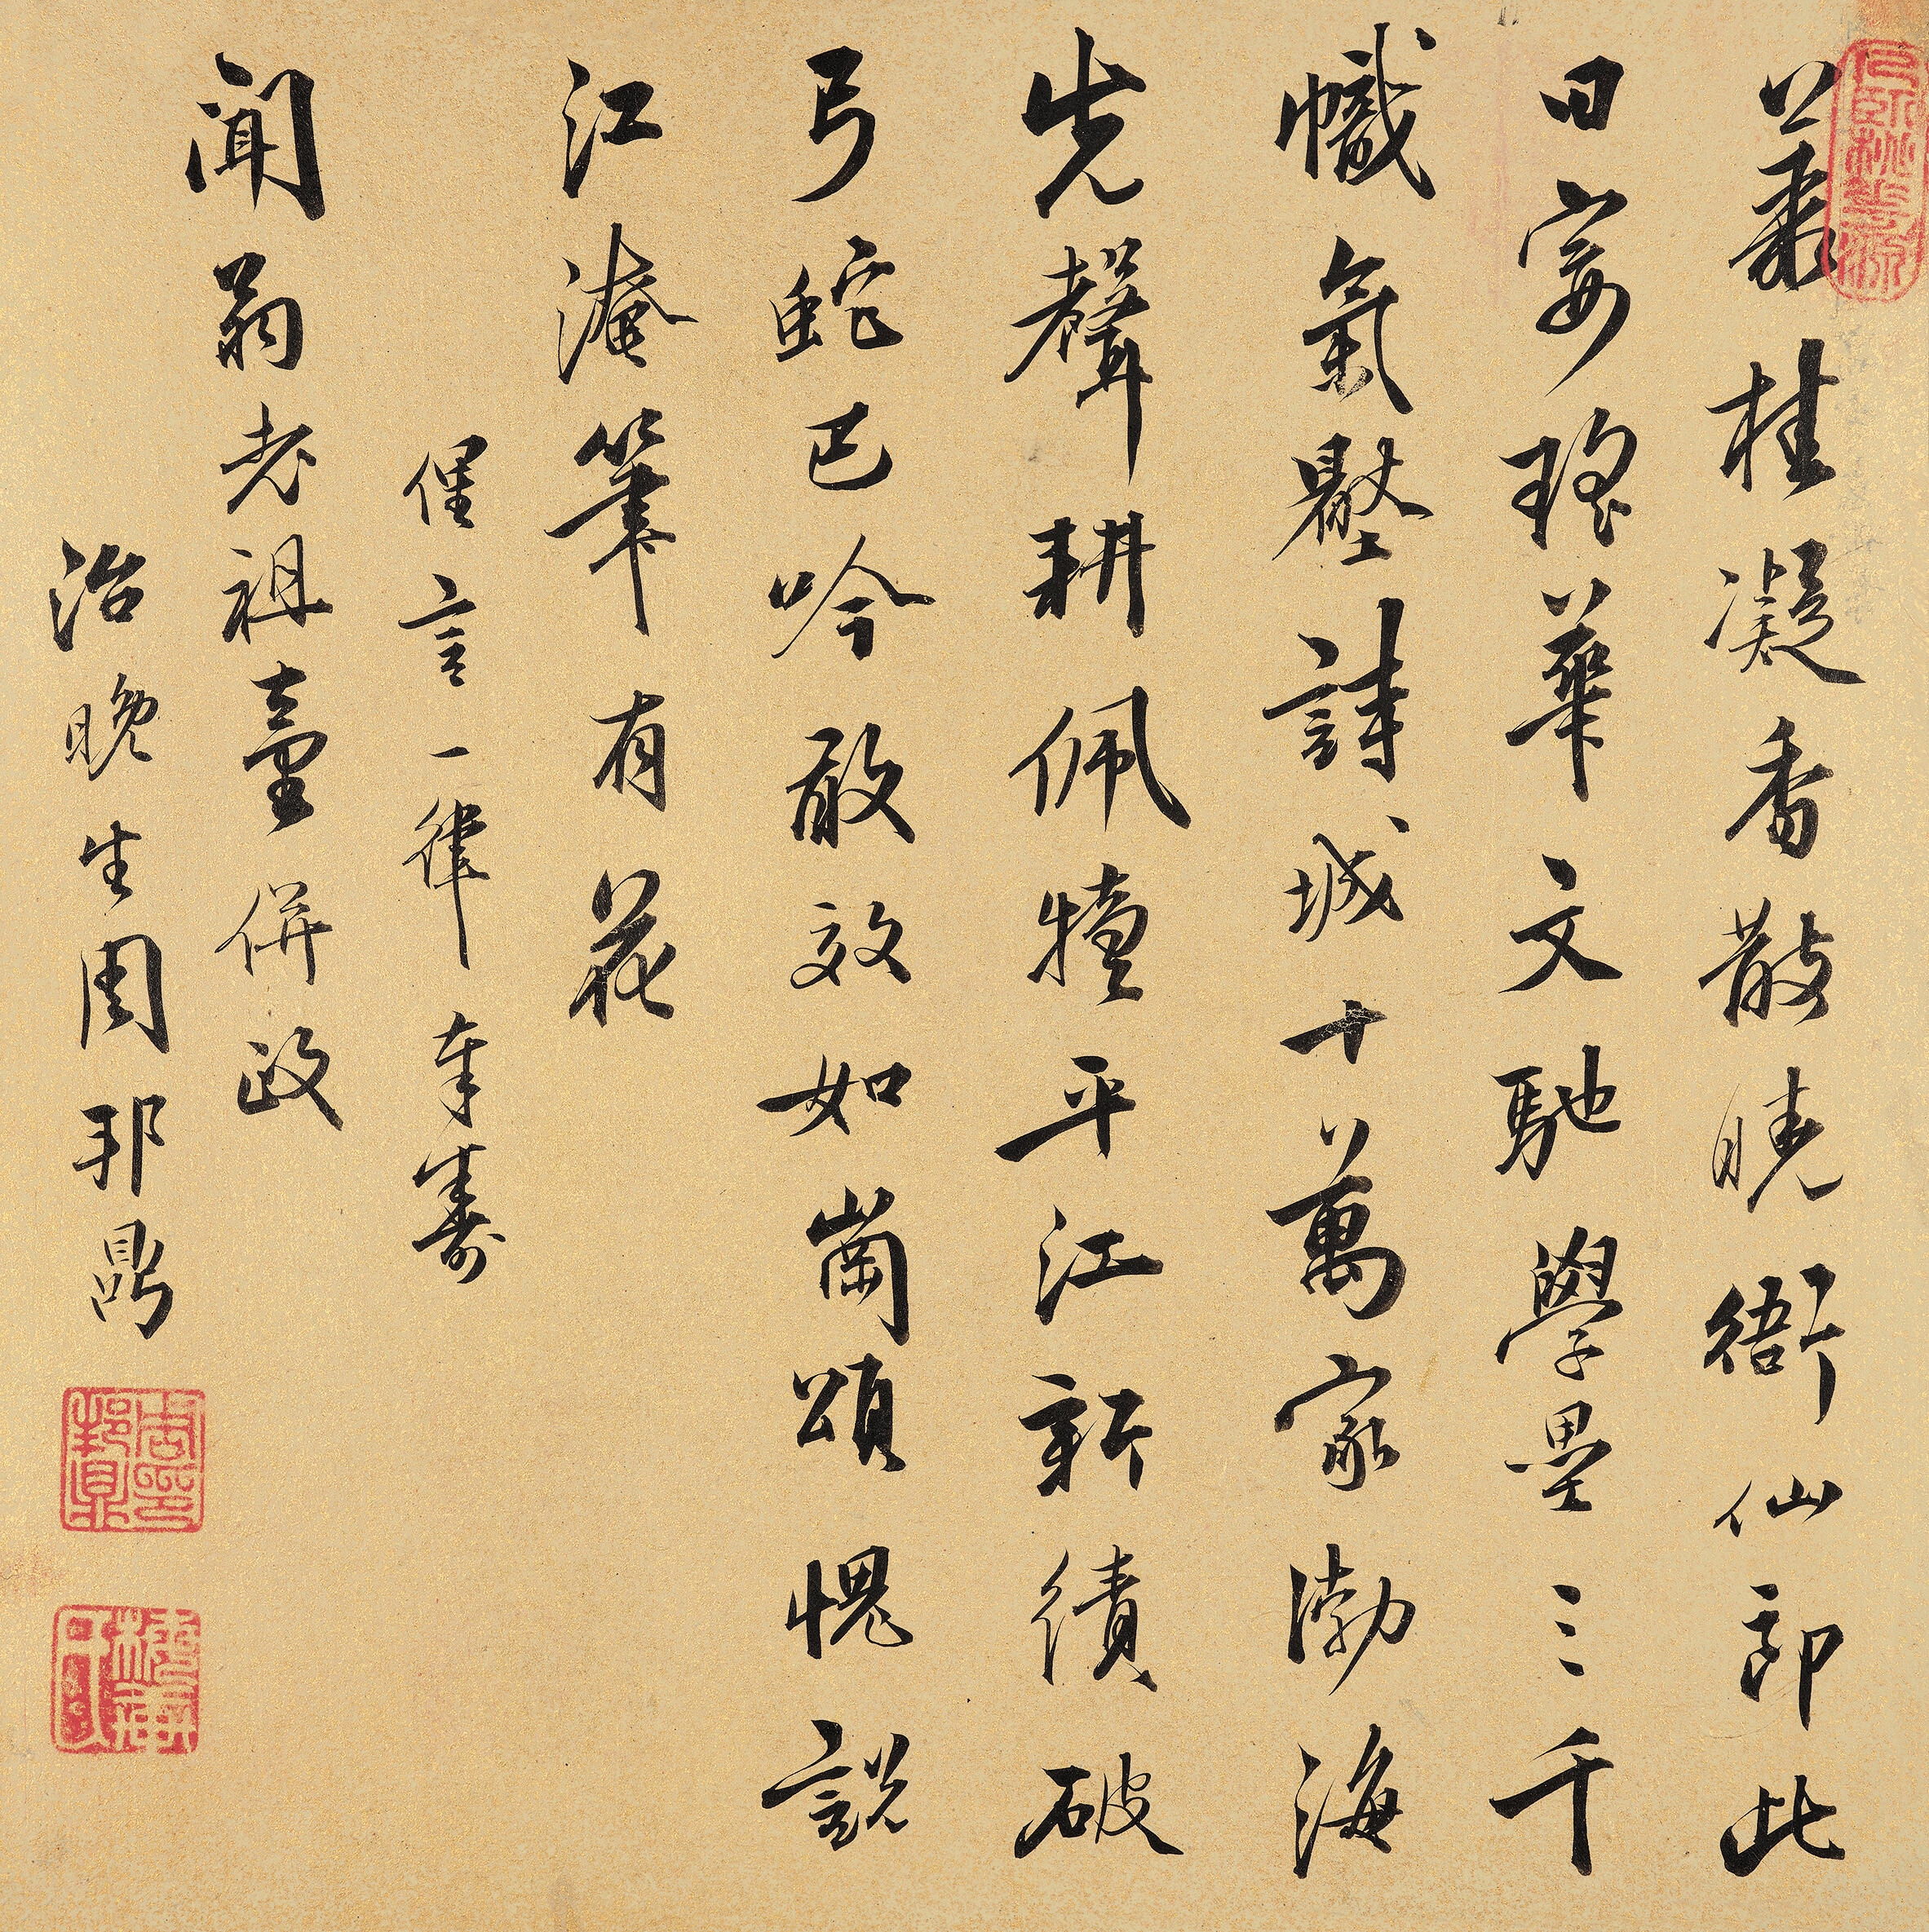 叢桂凝香散曉衙仙郎此
日宴瑤華文馳學壘三千
幟氣壓詩城十萬家渤海
先聲耕佩犢平江新績破
弓蛇巴吟敢效如崗頌愧說
江淹筆有花
俚言一律奉壽
聞翁老祖臺併政
治晚生周邦鼎
周邦鼎印